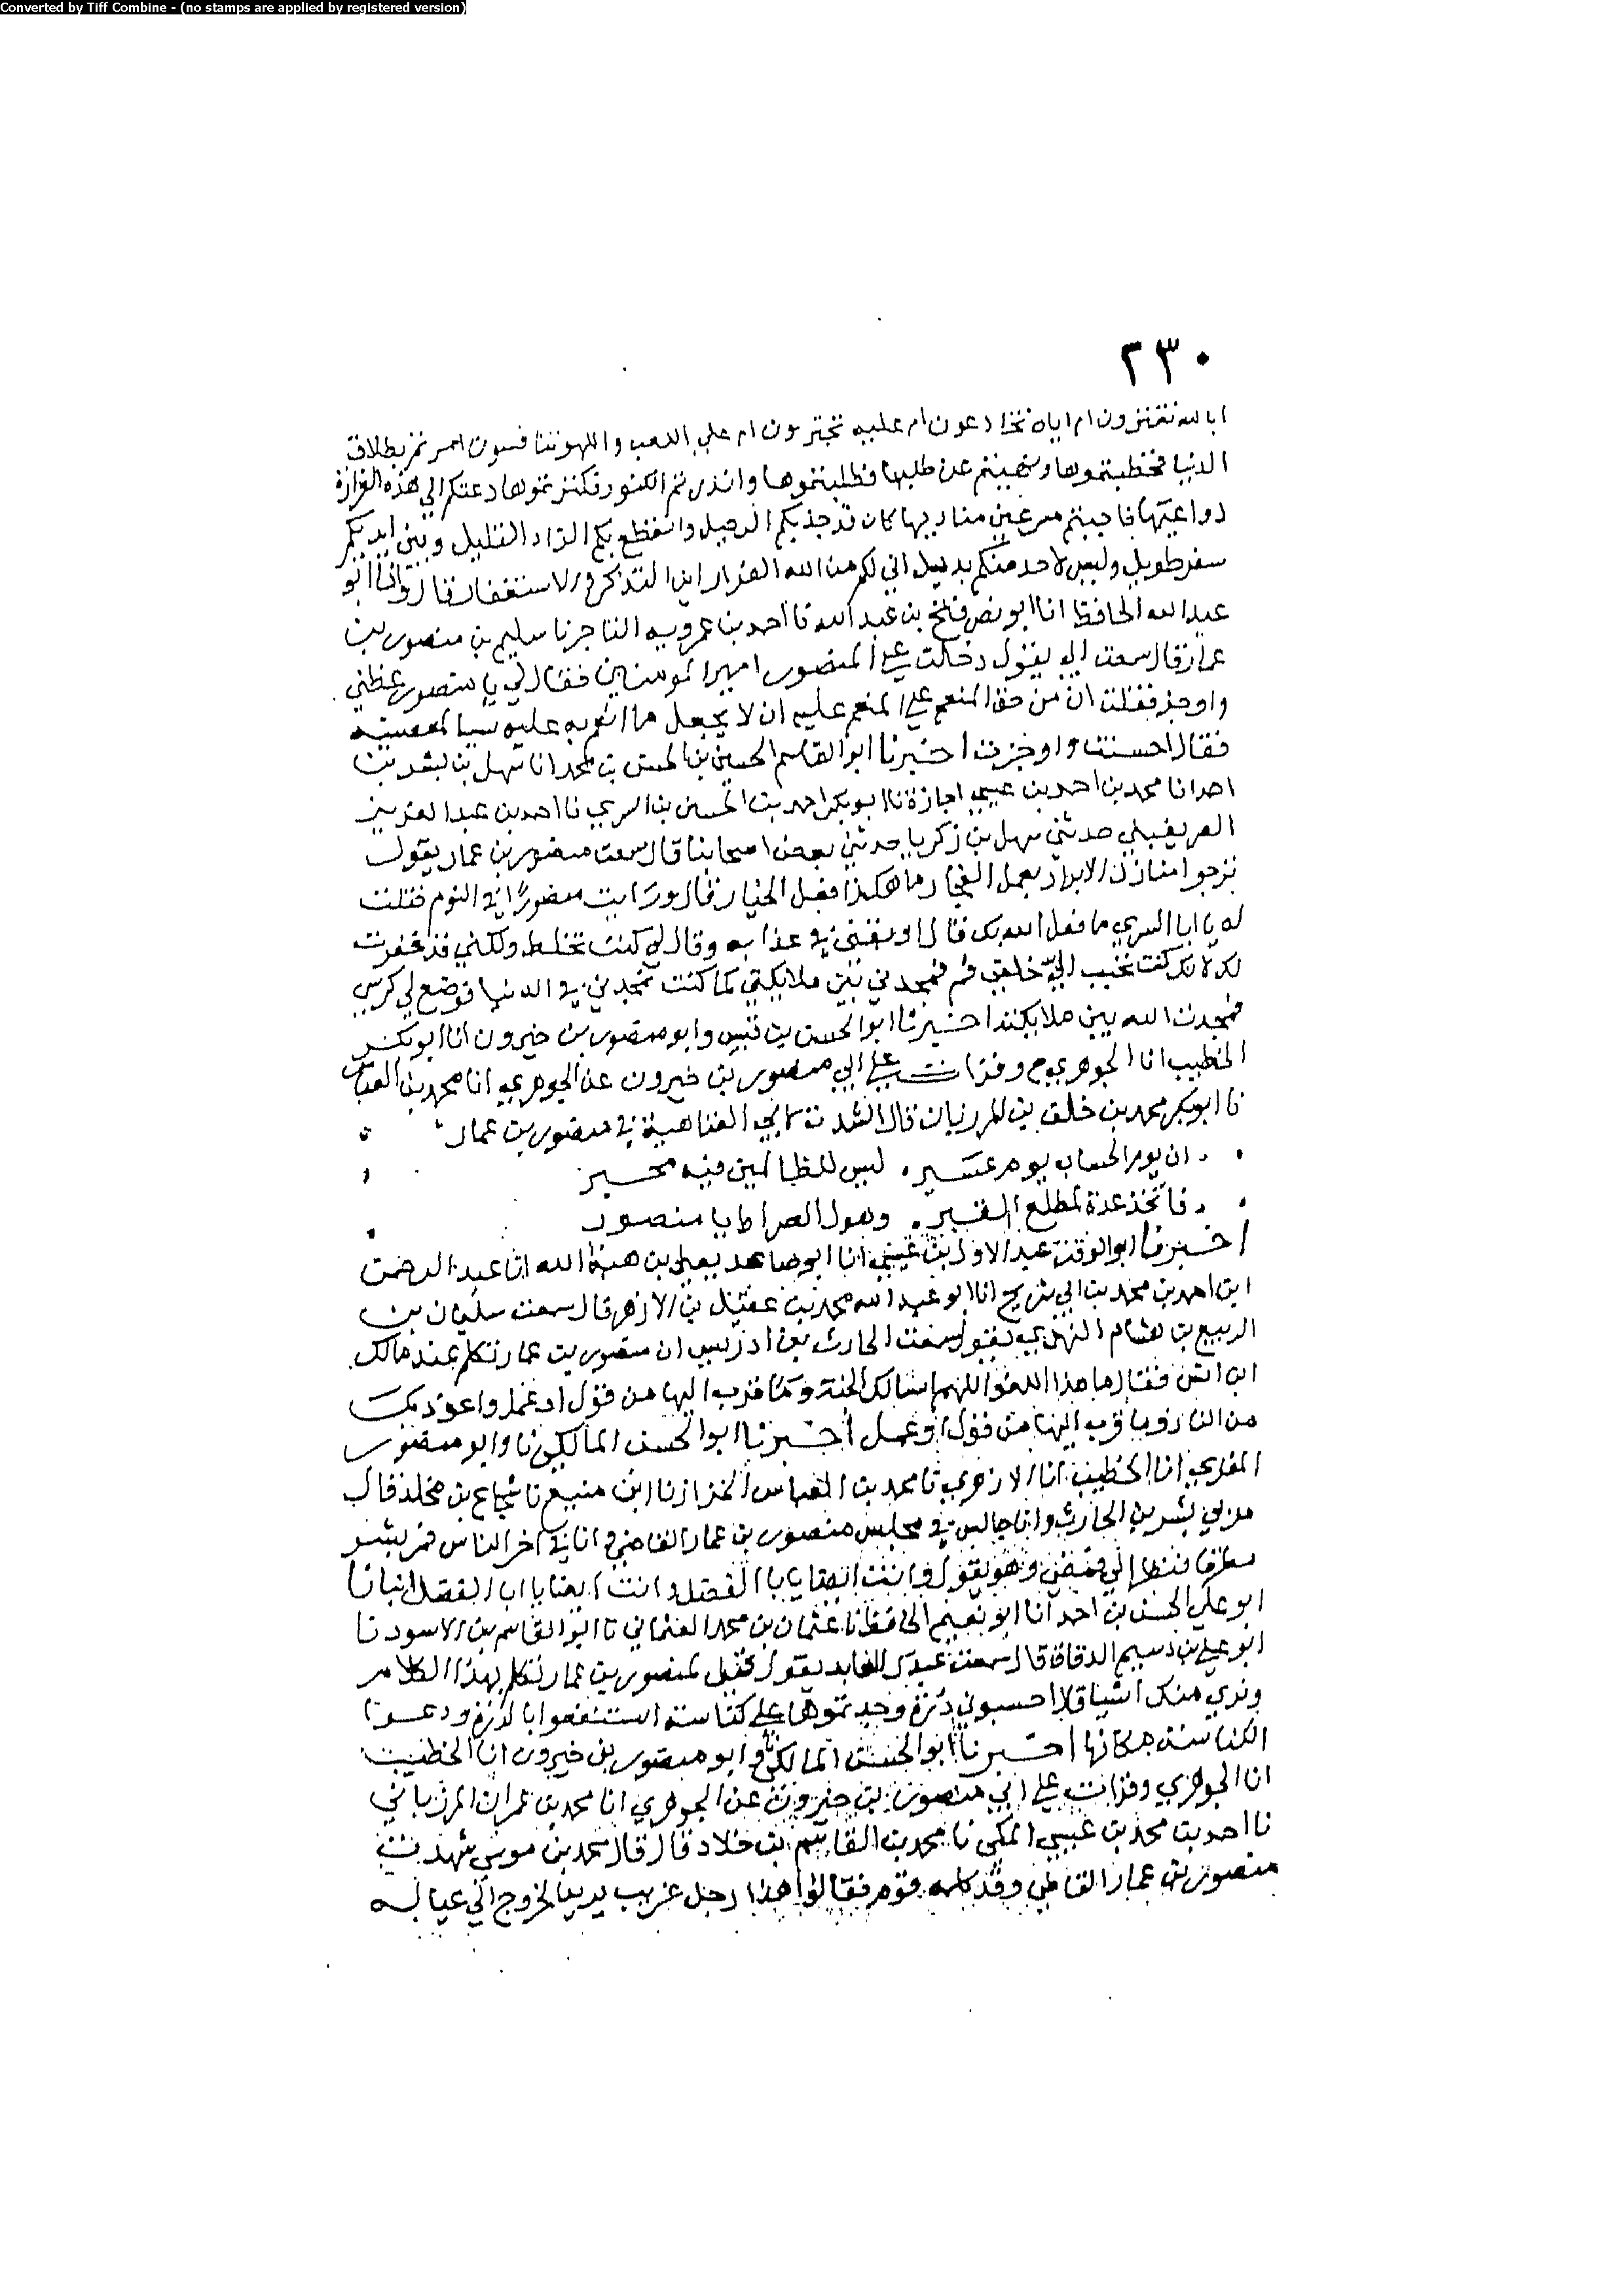 Converted by Tiff Combine - (no stamps are applied by registered version)
٢٣٠
ابالله تغترون ام اياه تخادعون ام عليه تجترون ام علي اللعب واللهو تتنافسون امرتم بطلاق
الدنيا فخطبتموها ونهيتم عن طلبها فطلبتموها وانذرتم الكنوز فكنزتموها دعتكم الي هذه الغرارة
دواعيها فاجبتم مسرعين مناديها كان قد جد بكم الرحيل وانقطع بكم الزاد القليل وبين ايديكم
سفر طويل وليس لاحد منكم بديل اني لكم من الله الفرار اين التذكر والاستغفار قال وانا ابو
عبد الله الحافظ انا ابو نصر فتح بن عبد الله نا احمد بن عمرويه التاجر نا سليم بن منصور بن
عمار قال سمعت ابي يقول دخلت علي المنصور امير المومنين فقال لي يا منصور عظني
واوجز فقلت ان من حق المنعم علي المنعم عليه ان لا يجعل ما انعم به عليه سببا لمعصيته
فقال احسنت واوجزت اخبرنا ابو القاسم الحسين بن الحسن بن محمد انا سهل بن بشر بن
احمد انا محمد بن احمد بن عيسي اجازة نا ابو بكر احمد بن الحسين بن السري نا احمد بن عبد العزيز
الصريفيني حدثني سهل بن زكريا حدثني بعض اصحابنا قال سمعت منصور بن عمار يقول
نرجوا منازل الابرار بعمل الفجار ما هكذا فعل الخيار قال ورايت منصورا في النوم فقلت
له يا ابا السري ما فعل الله بك قال اوقفني في عذابه وقال لي كنت تخلط ولكني قد غفرت
لك لانك كنت تحبب الي خلقي قم فمجدني بين ملايكتي كما كنت تمجدني في الدنيا فوضع لي كرسي
فمجدت الله بين ملايكته اخبرنا ابو الحسن بن قبيس وابو منصور بن خيرون انا ابو بكر
الخطيب انا الجوهري ح وقرات علي ابي منصور بن خيرون عن الجوهري انا محمد بن العباس
نا ابو بكر محمد بن خلف بن المرزبان قال انشدت لابي العتاهية في منصور بن عمار
ان يوم الحساب يوم عسير ليس للظالمين فيه مجير
فاتخذ عدة لمطلع القبر وهول الصراط يا منصور
اخبرنا ابو الوقت عبد الاول بن عيسي انا ابو صاعد يعلي بن هبة الله انا عبد الرحمن
ابن احمد بن محمد بن ابي شريح انا ابو عبد الله محمد بن عقيل بن الازهر قال سمعت سليمان بن
الربيع بن هشام النهدي يقول سمعت الحارث بن ادريس ان منصور بن عمار تكلم عند مالك
ابن انس فقال ما هذا اللغو اللهم اسالك الجنة وما قرب اليها من قول او عمل واعوذ بك
من النار وما قرب اليها من قول او عمل اخبرنا ابو الحسن المالكي نا وابو منصور
المقري انا الخطيب انا الازهري نا محمد بن العباس الخزاز نا ابن منيع نا شجاع بن مخلد قال
مر بي بشر بن الحارث وانا جالس في مجلس منصور بن عمار القاص وانا في اخر الناس فمر بشر
مطرقا فنظر الي فمضي وهو يقول وانت ايضا يا با الفضل وانت ايضا يا ابا الفضل انبانا
ابو علي الحسن بن احمد انا ابو نعيم الحافظ نا عثمان بن محمد العثماني نا ابو القاسم بن الاسود نا
ابو علي بن دسيم الدقاق قال سمعت عبدك العابد يقول قيل لمنصور بن عمار تتكلم بهذا الكلام
ونري منك اشيا قال احسبوني درة وجدتموها علي كناسة استنفعوا بالدرة ودعوا
الكناسة مكانها اخبرنا ابو الحسن المالكي نا وابو منصور بن خيرون انا الخطيب
انا الجوهري وقرات علي ابي منصور بن خيرون عن الجوهري انا محمد بن عمران المرزباني
نا احمد بن محمد بن عيسي المكي نا محمد بن القاسم بن خلاد قال قال محمد بن موسي شهدت
منصور بن عمار القاص وقد كلمه قوم فقالوا هذا رجل غريب يريد الخروج الي عياله